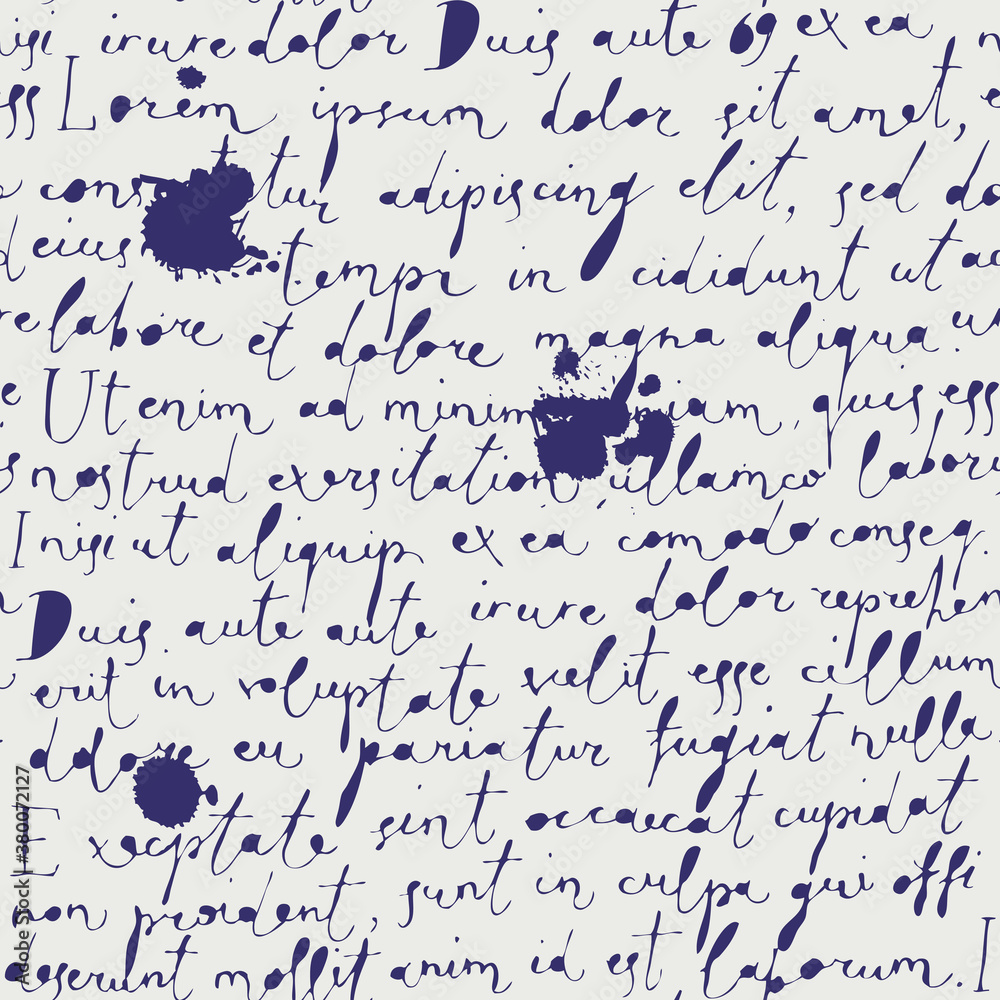 nisi irure dolor Duis aute ex ea
Lorem ipsum dolor sit amet,
cons t tur adipiscing elit, sed do
d eius t.empr in cididunt ut ac
re labore et dolore magna aliqua. un
e. Ut enim ad minim niam, quis ess
s nostrud exersitation ullamco laboru
I nisi ut aliquip ex ea comodo conseq.
Duis. aute aute irure dolor reprehen
erit in voluptate vœlit esse cillum
ddolore eu pariatur fugiat nulla.
E xecptate sint occaecat cupidat
non proident, sunt in culpa qui offi
deserunt mollit anim id est, laborum. I
Adobe Stock | #380072127